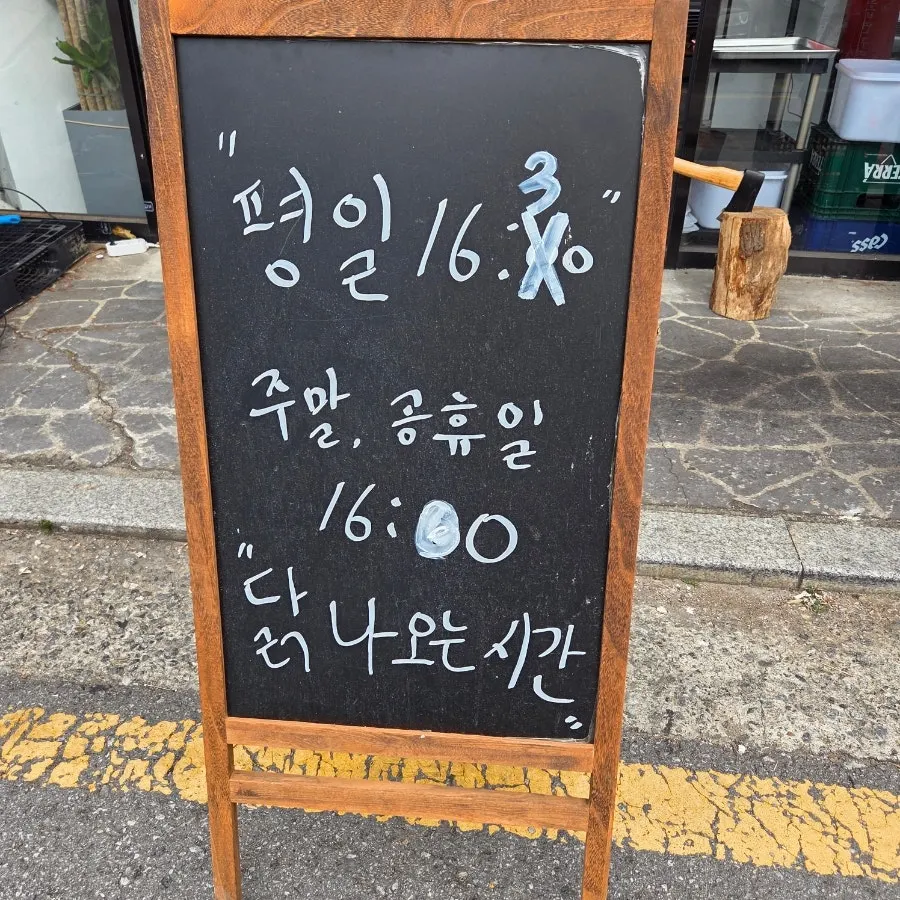 "평일 16:30"
주말, 공휴일
16:00
"닭 나오는 시간"
TERRA
Cass